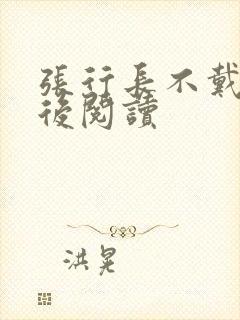 張行長不戴
後閱讀
洪晃